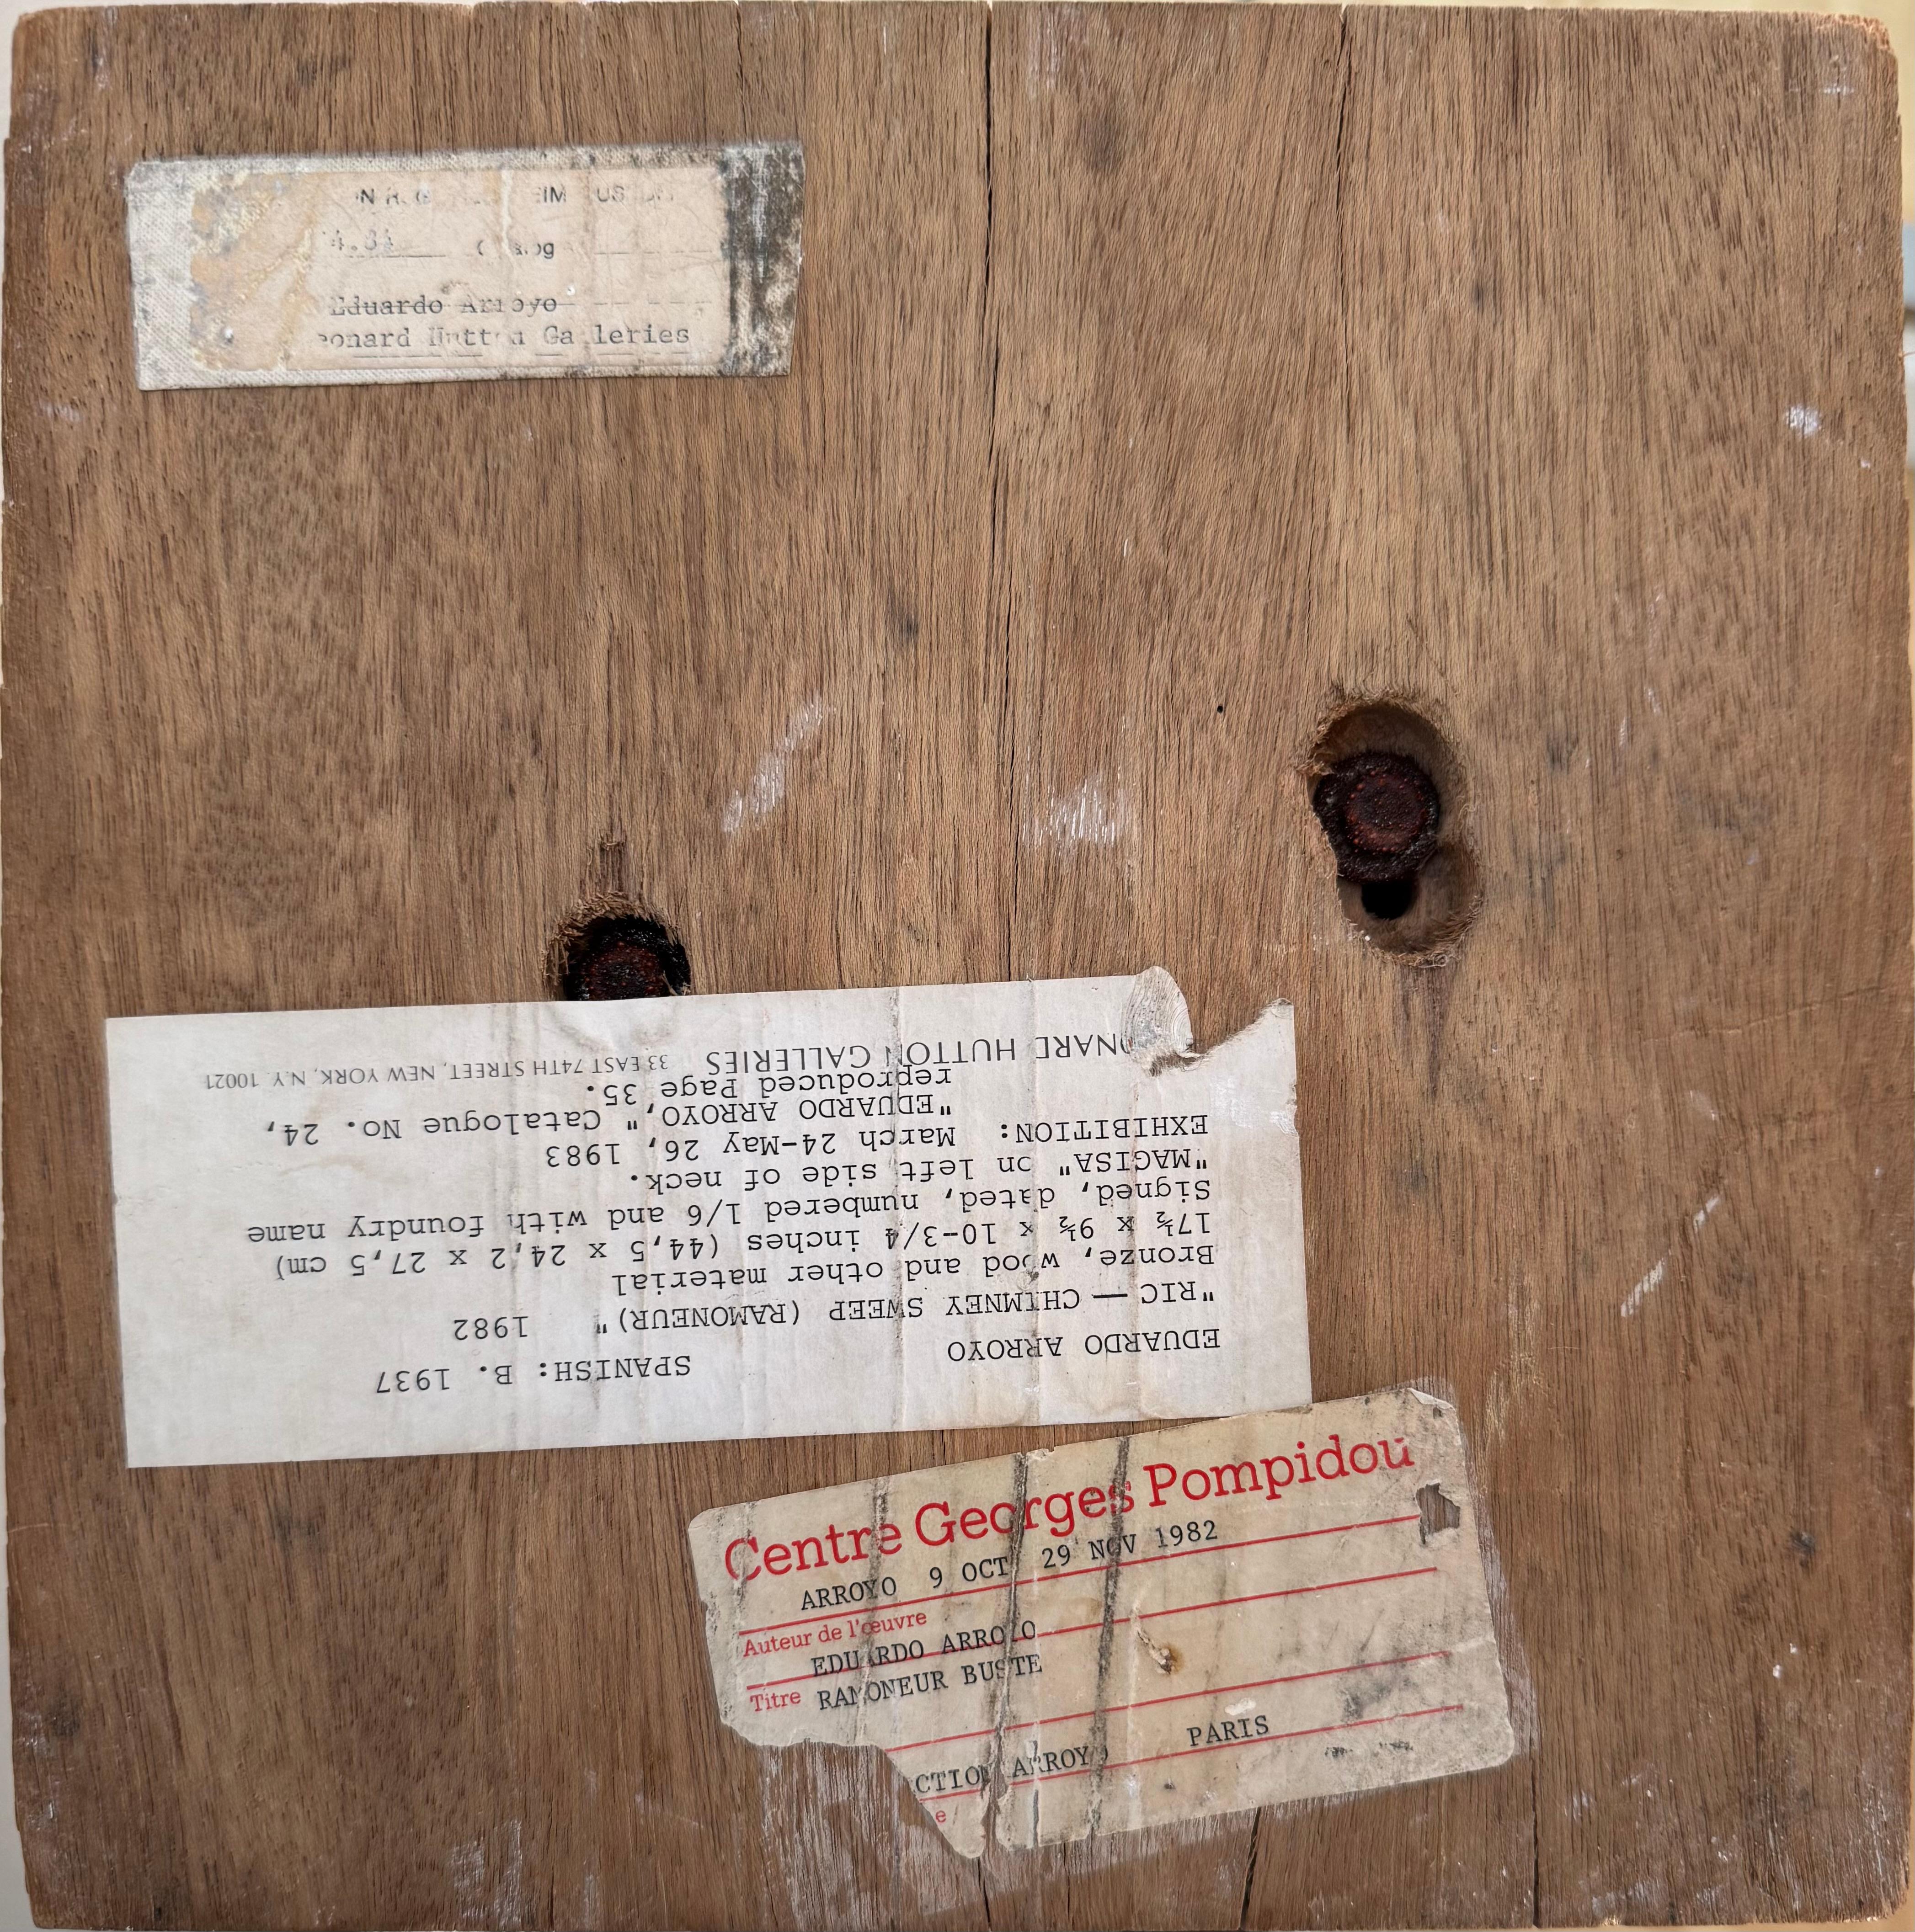 Eduardo Arroyo
Galleries
EDUARDO ARROYO SPANISH: B. 1937
"RIC — CHIMNEY SWEEP (RAMONEUR)" 1982
Bronze, wood and other material
17½ x 9½ x 10-3/4 inches (44,5 x 24,2 x 27,5 cm)
Signed, dated, numbered 1/6 and with foundry name
"MAGISA" on left side of neck.
EXHIBITION: March 24-May 26, 1983
"EDUARDO ARROYO," Catalogue No. 24,
reproduced Page 35.
HUTTON GALLERIES 33 EAST 74TH STREET, NEW YORK, N.Y. 10021
Centre Georges Pompidou
ARROYO 9 OCT 29 NOV 1982
Auteur de l'œuvre
EDUARDO ARROYO
Titre RAMONEUR BUSTE
ARROYO PARIS